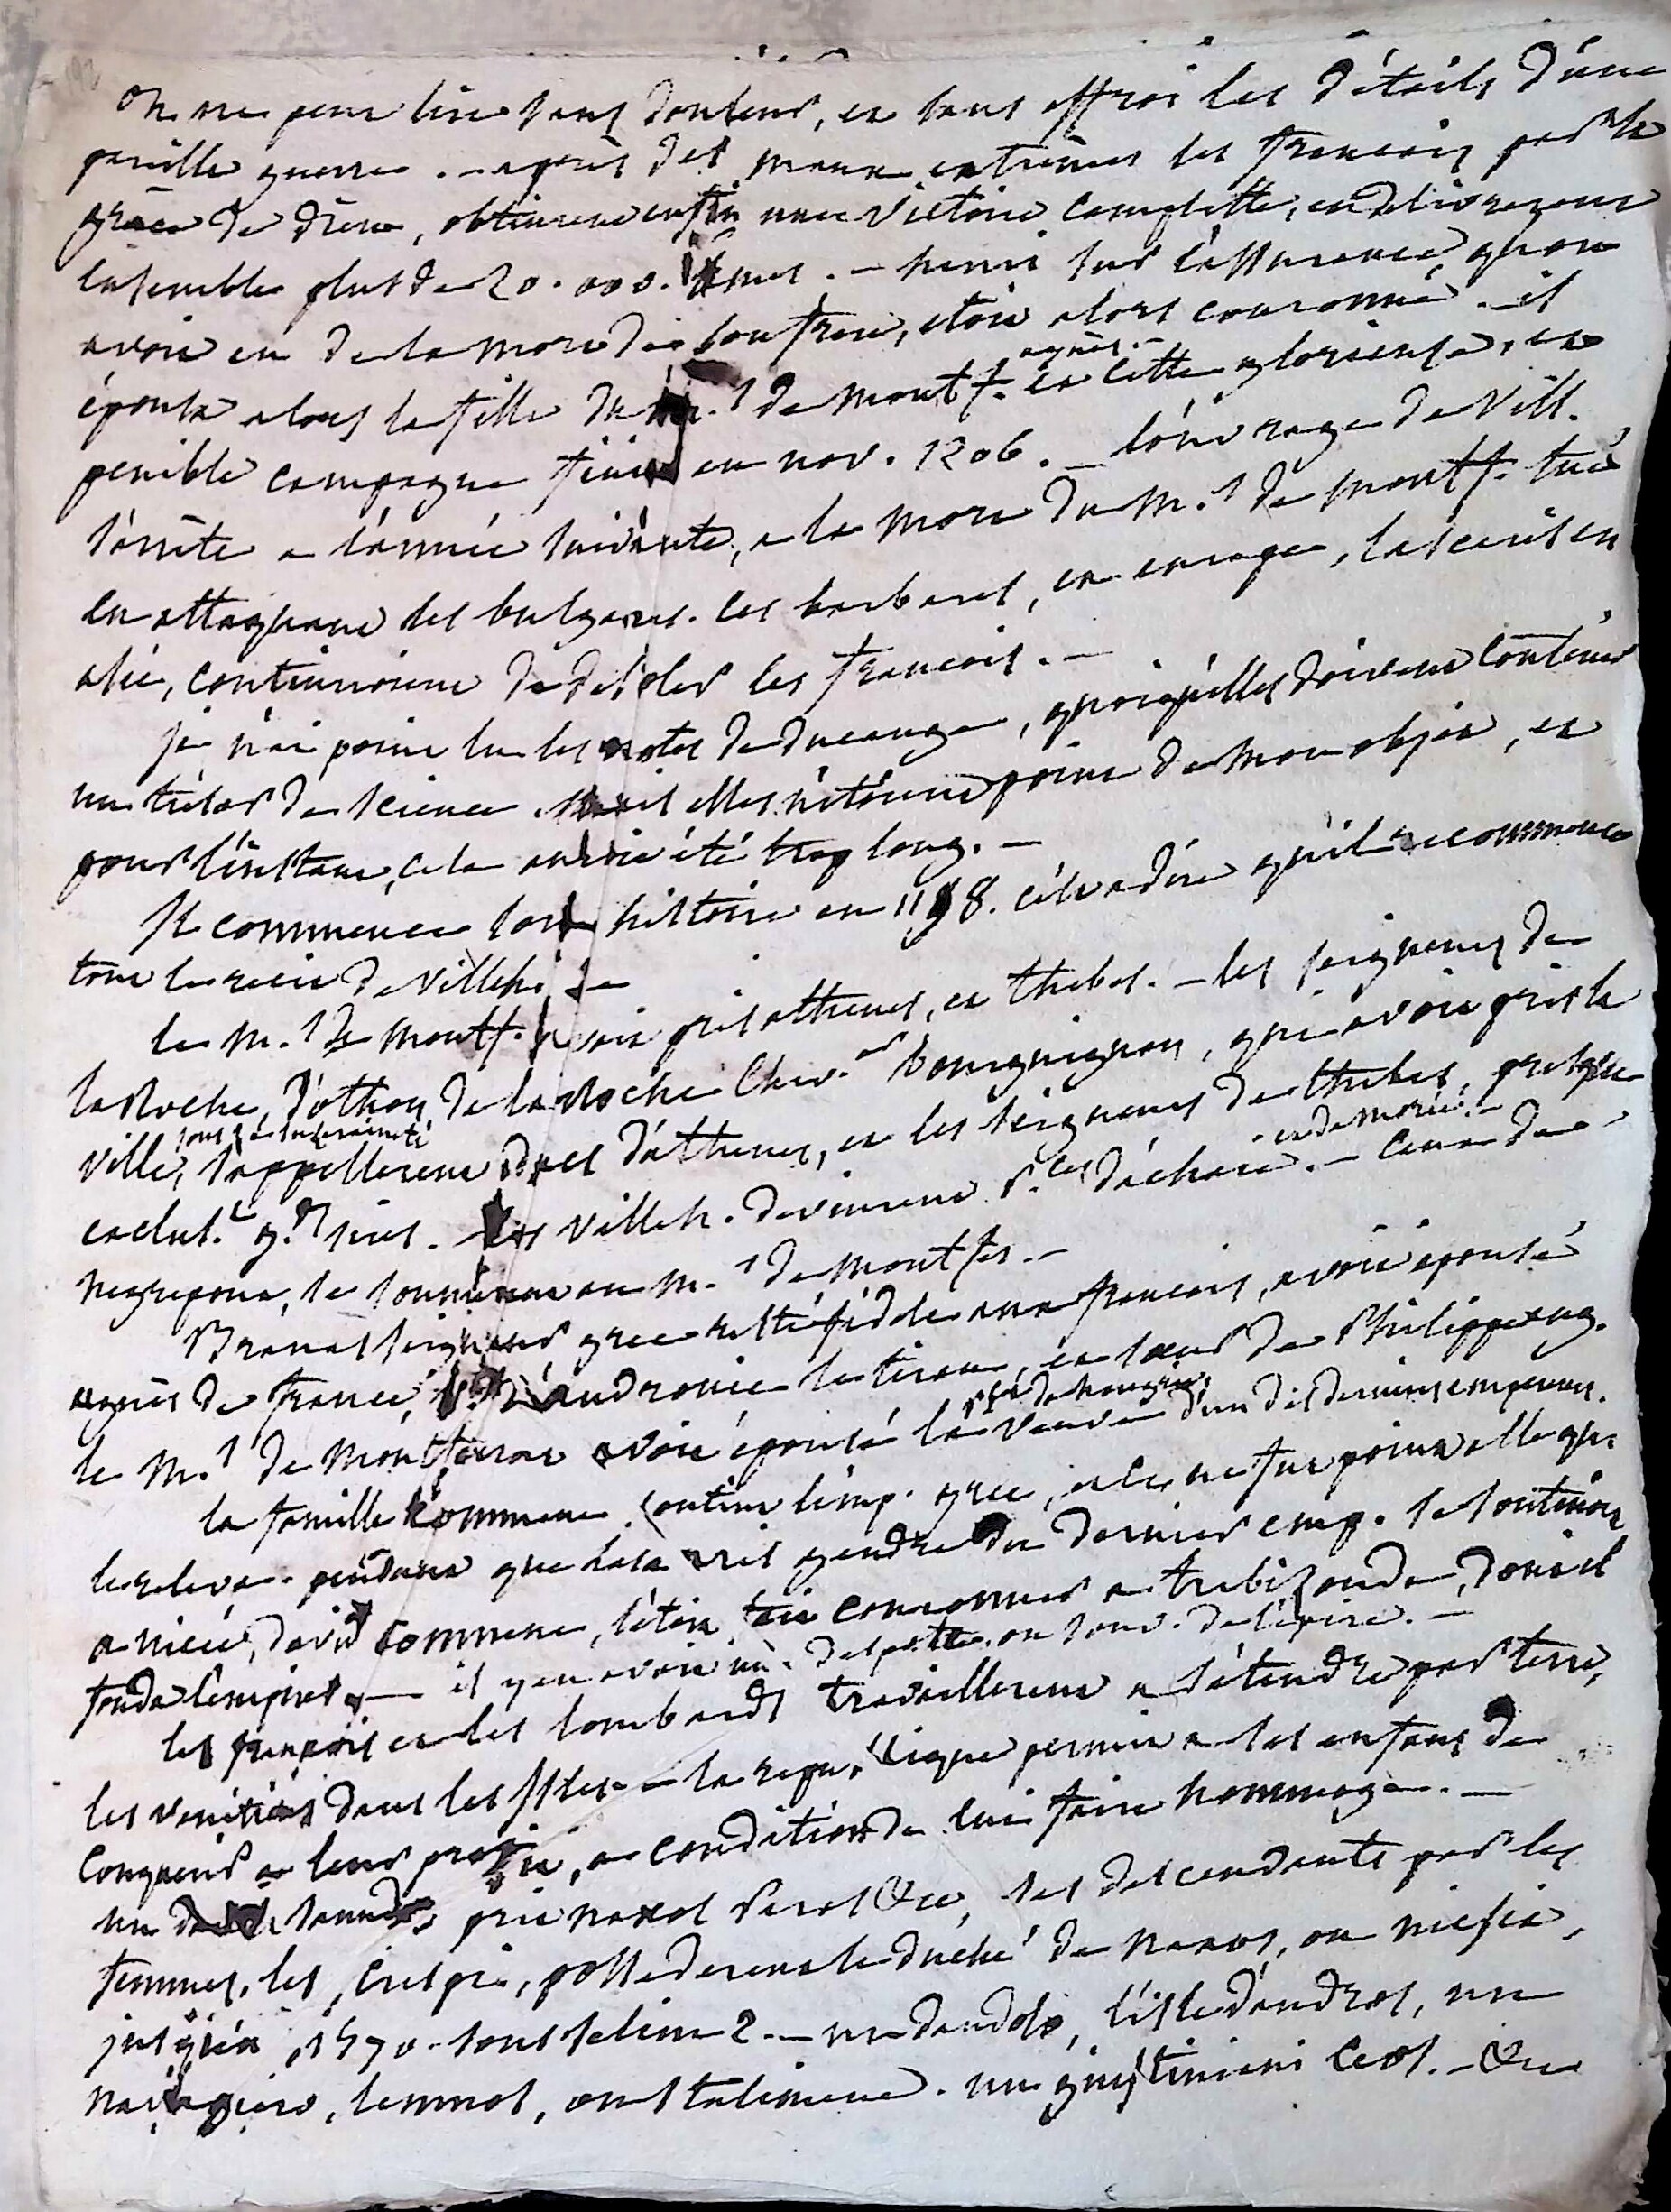 On ne peut lire sans douleur, et sans effroi les détails d'une
pareille guerre. - après des maux extrêmes les françois par la
grâce de dieu, obtinrent enfin une victoire complette, et delivrerent
ensemble plus de 20.000. ames. - henri sur l'assurance qu'on
avoit eu de la mort de son frere, étoit alors couronné. - il
épousa alors la fille du m.s de montf. agnès. - et cette glorieuse, et
penible campagne finit en nov. 1206. - l'ouvrage de Vill.
s'arrête a l'année suivante, a la mort du M.s de montf. tué
en attaquant les bulgares. ces barbares, et enragés, lascaris en
asie, continuoient de désoler les françois. -
je n'ai point lu les notes de ducange, quoiqu'elles doivent contenir
un trésor de science. mais elles n'étoient point de mon objet, et
pour l'instant, cela auroit été trop long. -
Il commence son histoire en 1198. c'est a dire qu'il recommence
tout le recit de Villeh. -
le M.s de montf. avoit pris athenes, et thebes. - les seigneurs de
la Roche, d'othon de la Roche Chev.er bourguignon, qui avoit pris la
ville, sous sa suzeraineté s'appellerent ducs d'athenes, et les seigneurs de thebes, presque
exclus.t g.ds sires. - les villeh. devinrent p.ces d'achaie. - et de morée. - Ceux de
negrepont, se soumirent au M.s de montf. -
Branas seigneur grec resté fidele aux françois, avoit épousé
agnès de france, v.e d'andronic le tiran, et soeur de Philippe aug.
le M.s de Montferrat avoit épousé la veuve de hongrie, d'un des derniers empereurs.
la famille Comnene soutint l'emp. grec, et ce ne fut point elle qui
le releva. pendant que lascaris gendre du dernier emp. se soutenoit
a nicée, david Comnene, s'étoit fait couronner a trebizonde, dont il
fonda l'empire. - il y en avoit un. despotte, ou souv. de l'épire. -
les françois et les lombards travaillerent a s'étendre par terre,
les venitiens dans les isles. - la republique permit a ses enfans de
conquerir a leur profit, a condition de lui faire hommage. -
un sanudo prit naxos Paros &c, ses descendants par les
femmes, les crispi, possederent le duché de naxos, ou nicsia,
jusqu'en 1570. sous selim 2. - un dandolo, l'isle d'andros, un
navagiero, lemnos, ou stalimene. un giustiniani Ceos. - &c